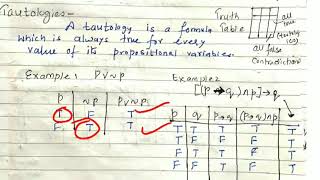 Tautologies-
A tautology is a formula
which is always true for every
value of its propositional variables.
Truth
Table
all
true
(tautology)
all false
Contradiction
Example 1
P∨~P
Example 2
[(P→q)∩P]→q
P ~P P∨~P
T F T
F T T
P q P→q (P→q)∩P
T T T T T
T F F F T
F T T F T
F F T F T